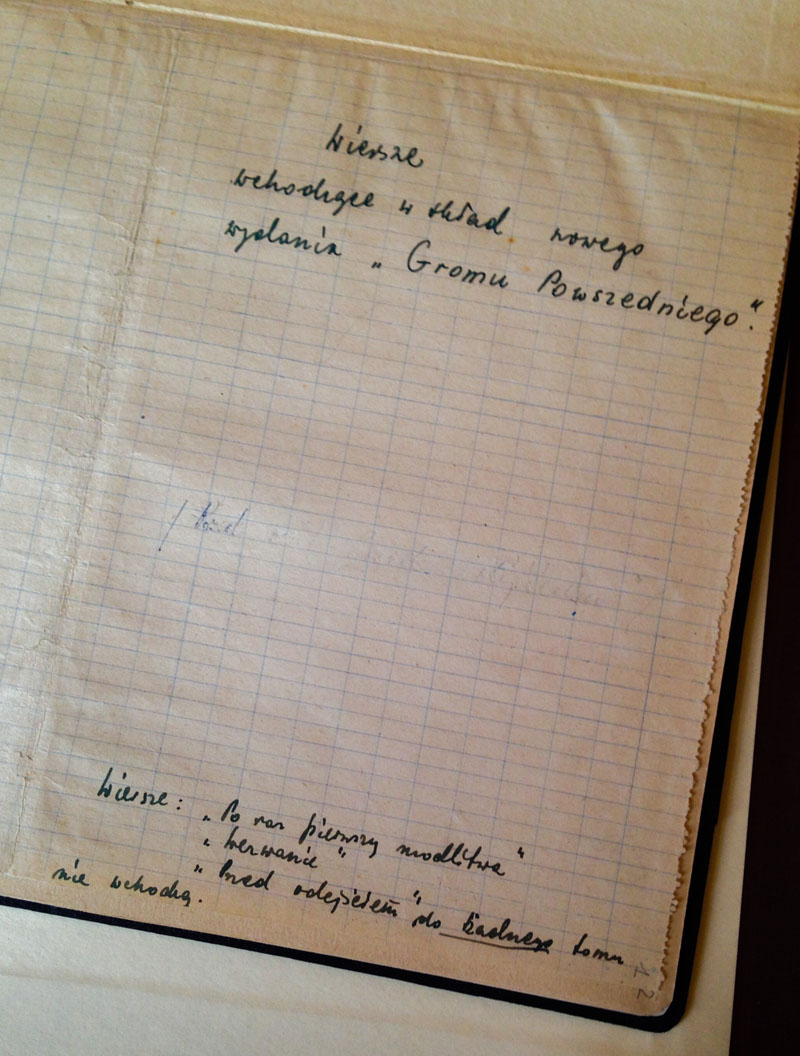 Wiersze
wchodzące w skład nowego
wydania „Gromu Powszedniego".
Wiersze: „Po raz pierwszy modlitwa"
„Wezwanie"
„Przed odejściem" do żadnego tomu
nie wchodzą.
12